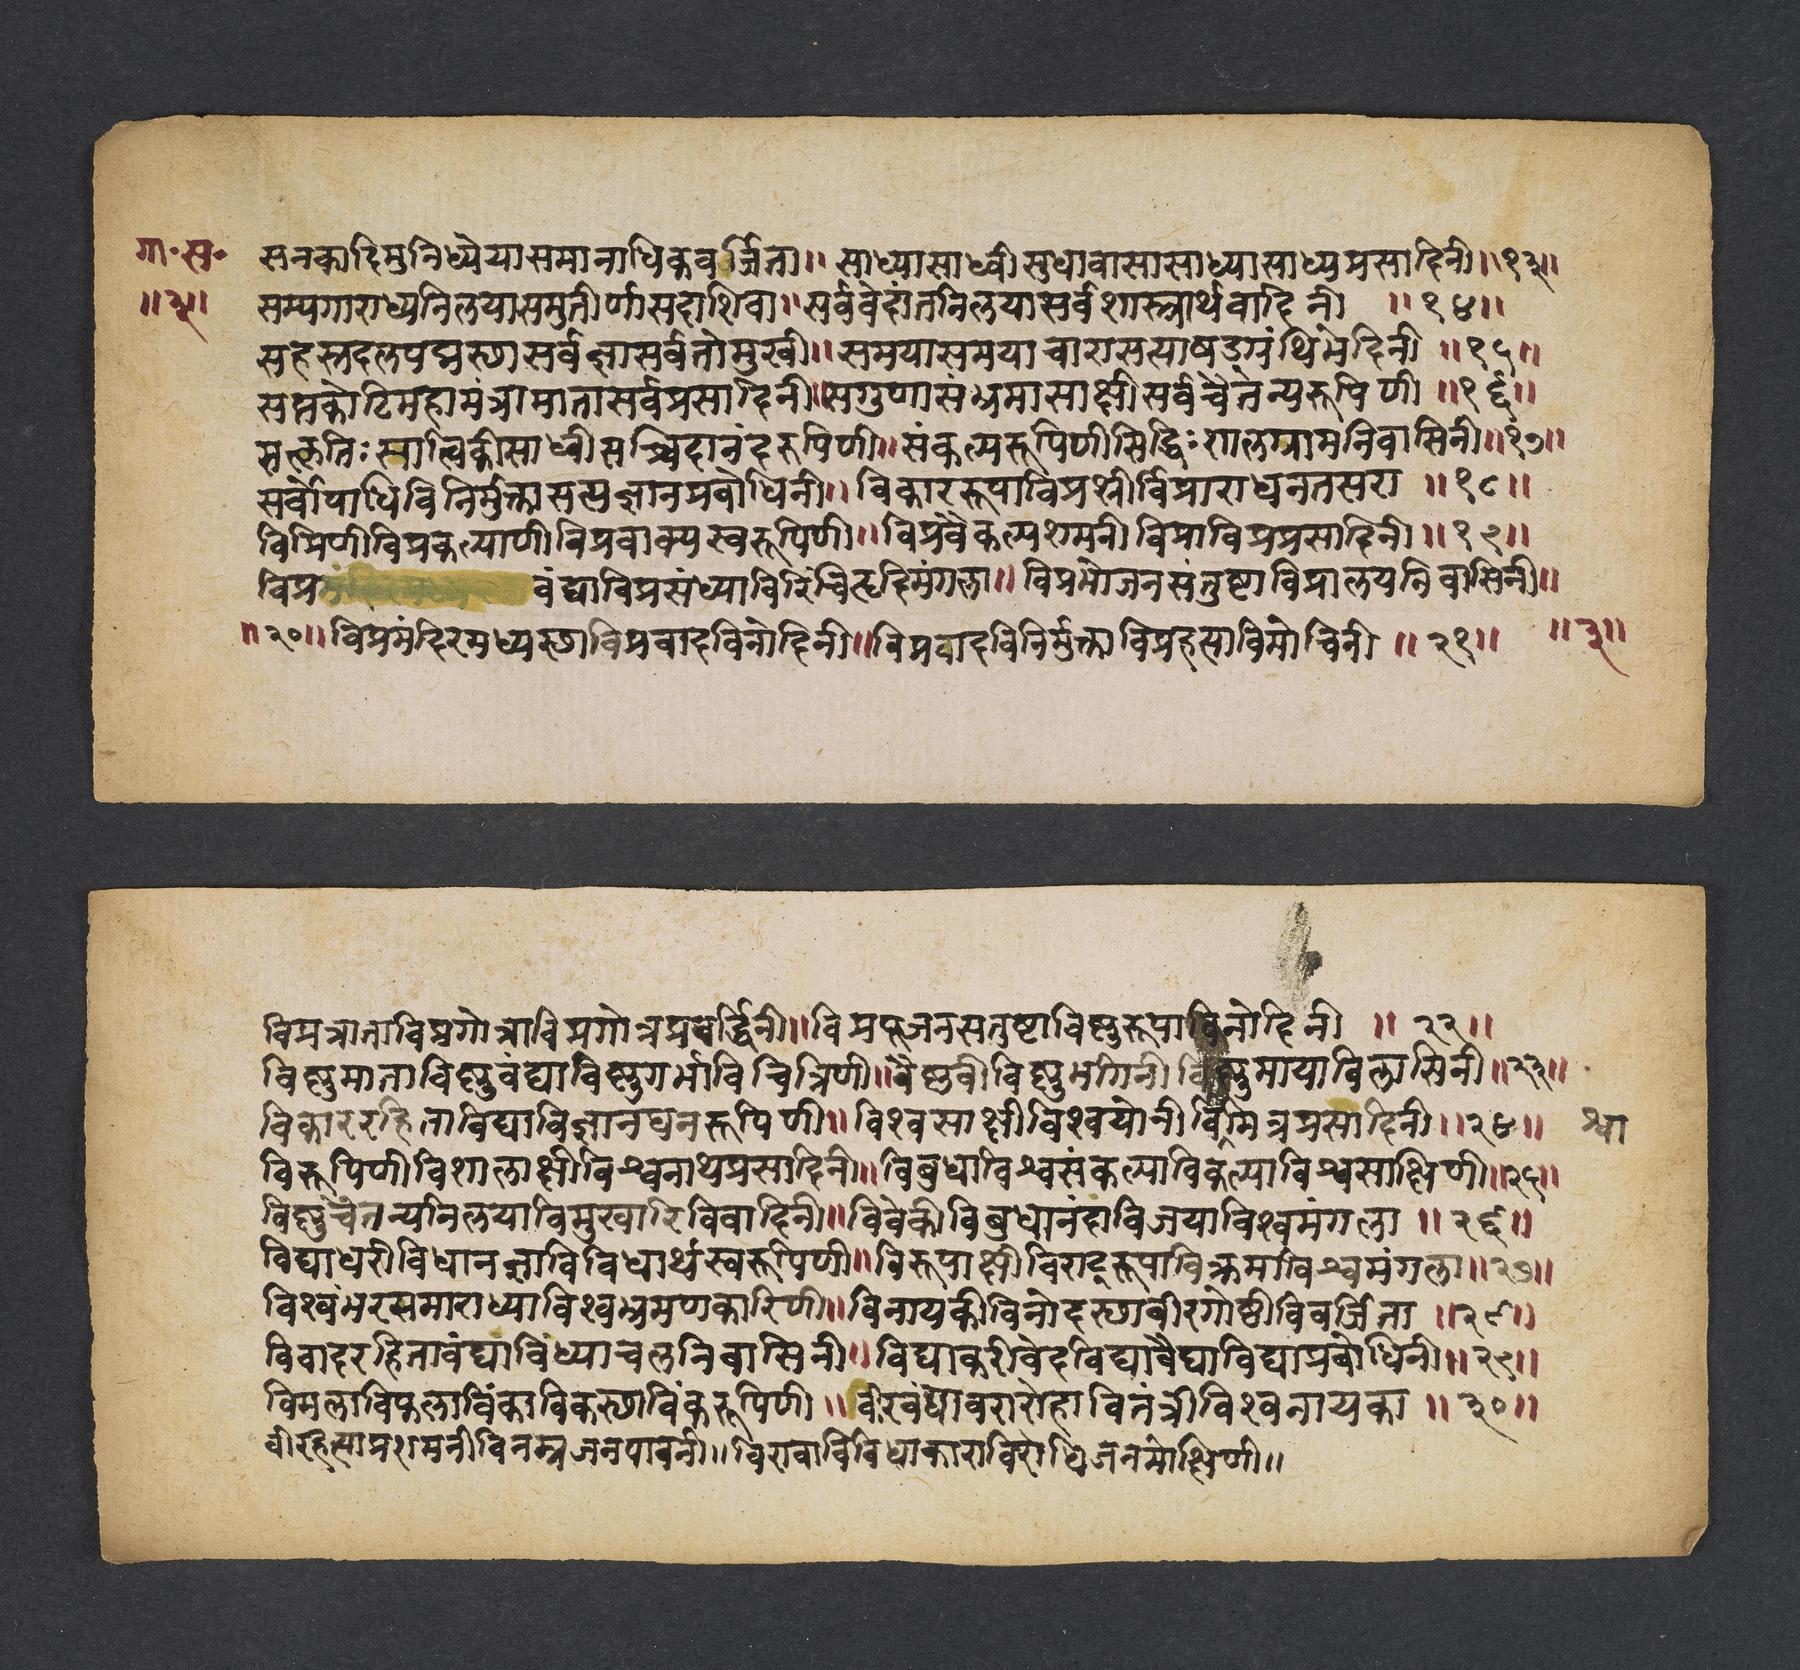 गा॰स॰ सनकादिमुनिध्येयासमानाधिकवर्जिता॥ साध्यासाध्वीसुधावासासाध्यासाध्यप्रसादिनी॥१३॥
॥३॥ सम्यगाराध्यनिलयासमुतीर्णासदाशिवा॥सर्ववेदांतनिलयासर्वशास्त्रार्थवादिनी ॥१४॥
सहस्तदलपद्मस्छासर्वज्ञासर्वतोमुखी॥समयासमयाचारासत्याषड्ग्रंथिभेदिनी ॥१५॥
सप्तकोटिमहामंत्रामातासर्वप्रसादिनी॥सगुणासंभ्रमासाक्षीसर्वचैतन्यरूपिणी ॥१६॥
सत्कृतिःस्वात्विकीसाध्वीसच्चिदानंदरूपिणी॥संकल्परूपिणीसिद्धिःशालग्रामनिवासिनी॥१७॥
सर्वोपाधिविनिर्मुक्तासत्यज्ञानप्रबोधिनी॥ विकाररूपाविप्रश्रीर्विप्राराधनतसरा ॥१८॥
विप्रिणीविप्रकल्याणीविप्रवाक्यस्वरूपिणी॥विप्रवैकल्यशमनीविप्राविप्रप्रसादिनी॥१९॥
विप्र वंद्याविप्रसंध्याविरिंचिहृदिमंगला॥विप्रभोजनसंतुष्टाविप्रालयनिवासिनी॥
॥२०॥विप्रमंदिरमध्यस्छाविप्रवादविनोदिनी॥विप्रवादविनिर्मुक्ताविप्रहत्साविमोचिनी ॥२१॥ ॥३॥
विप्रत्राताविप्रगोत्राविप्रगोत्रप्रवर्द्धिनी॥विप्रपूजनसतुष्टाविष्णुरूपाविनोदिनी ॥ २२॥
विष्णुमाताविष्णुवंद्याविष्णुगर्भाविचित्रिणी॥वैष्णवीविष्णुभगिनीविष्णुमायाविलासिनी॥२३॥
विकाररहिताविद्याविज्ञानघनरूपिणी॥विश्वसाक्षीविश्वयोनीविमित्रप्रसादिनी॥२४॥ श्वा
विरूपिणीविशालाक्षीविश्वनाथप्रसादिनी॥विबुधाविश्वसंकल्पाविकल्पाविश्वसाक्षिणी॥२५॥
विष्णुचेतन्यनिलयाविमुखारिविवादिनी॥विवेकीविबुधानंदाविजयाविश्वमंगला ॥२६॥
विद्याधरीविधानज्ञाविविधार्थस्वरूपिणी॥विरूपाक्षीविराट्रूपाविक्रमाविश्वमंगला॥२७॥
विश्वंभरसमाराध्याविश्वभ्रमणकारिणी॥विनायकीविनोदस्छावीरगोष्ठीविवर्जिता ॥२८॥
विवादरहितावंद्याविंध्याचलनिवासिनी॥विद्याकरीवेदविद्यावैद्याविद्याप्रबोधिनी॥२९॥
विमलाविफलाविंकाविकस्छाविंकरूपिणी ॥वीरवंद्यावरारोहावितंत्रीविश्वनायका ॥३०॥
वीरहत्साप्रशमनीविनम्रजनपावनी॥विरावाविविधाकाराविरोधिजनमोक्षिणी॥